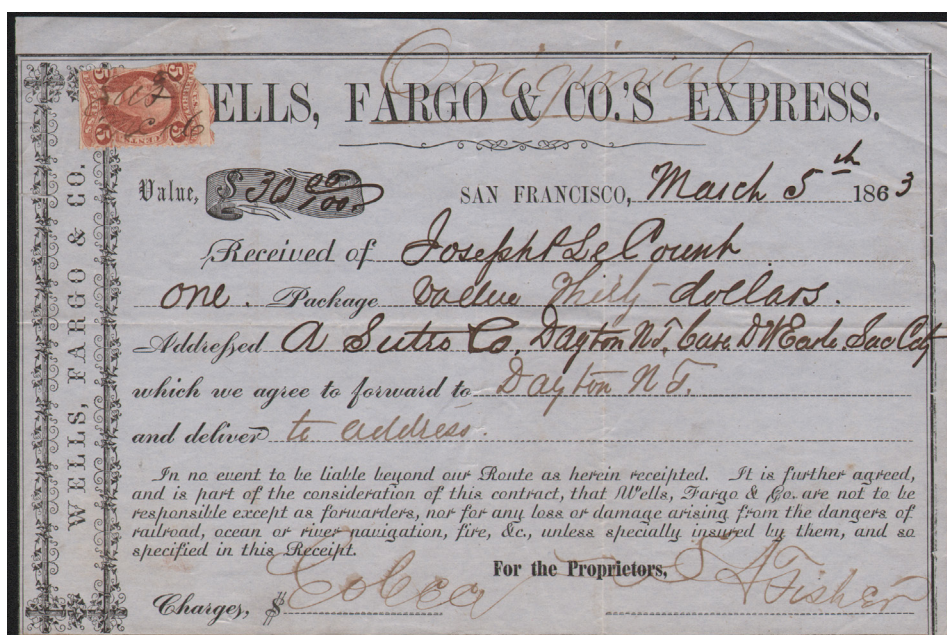 Original
WELLS, FARGO & CO.'S EXPRESS.
WELLS, FARGO & CO.
5 5
5 CENTS 5
Value, $ 30 00/100 SAN FRANCISCO, March 5th 1863
Received of Joseph LeCount
one . Package value Thirty dollars.
Addressed A Sutro Co, Dayton N.T. Care D W Earl Sac City
which we agree to forward to Dayton N T.
and deliver to address.
In no event to be liable beyond our Route as herein receipted. It is further agreed,
and is part of the consideration of this contract, that Wells, Fargo & Co. are not to be
responsible except as forwarders, nor for any loss or damage arising from the dangers of
railroad, ocean or river navigation, fire, &c., unless specially insured by them, and so
specified in this Receipt.
For the Proprietors,
Charges, $ S A Fisher